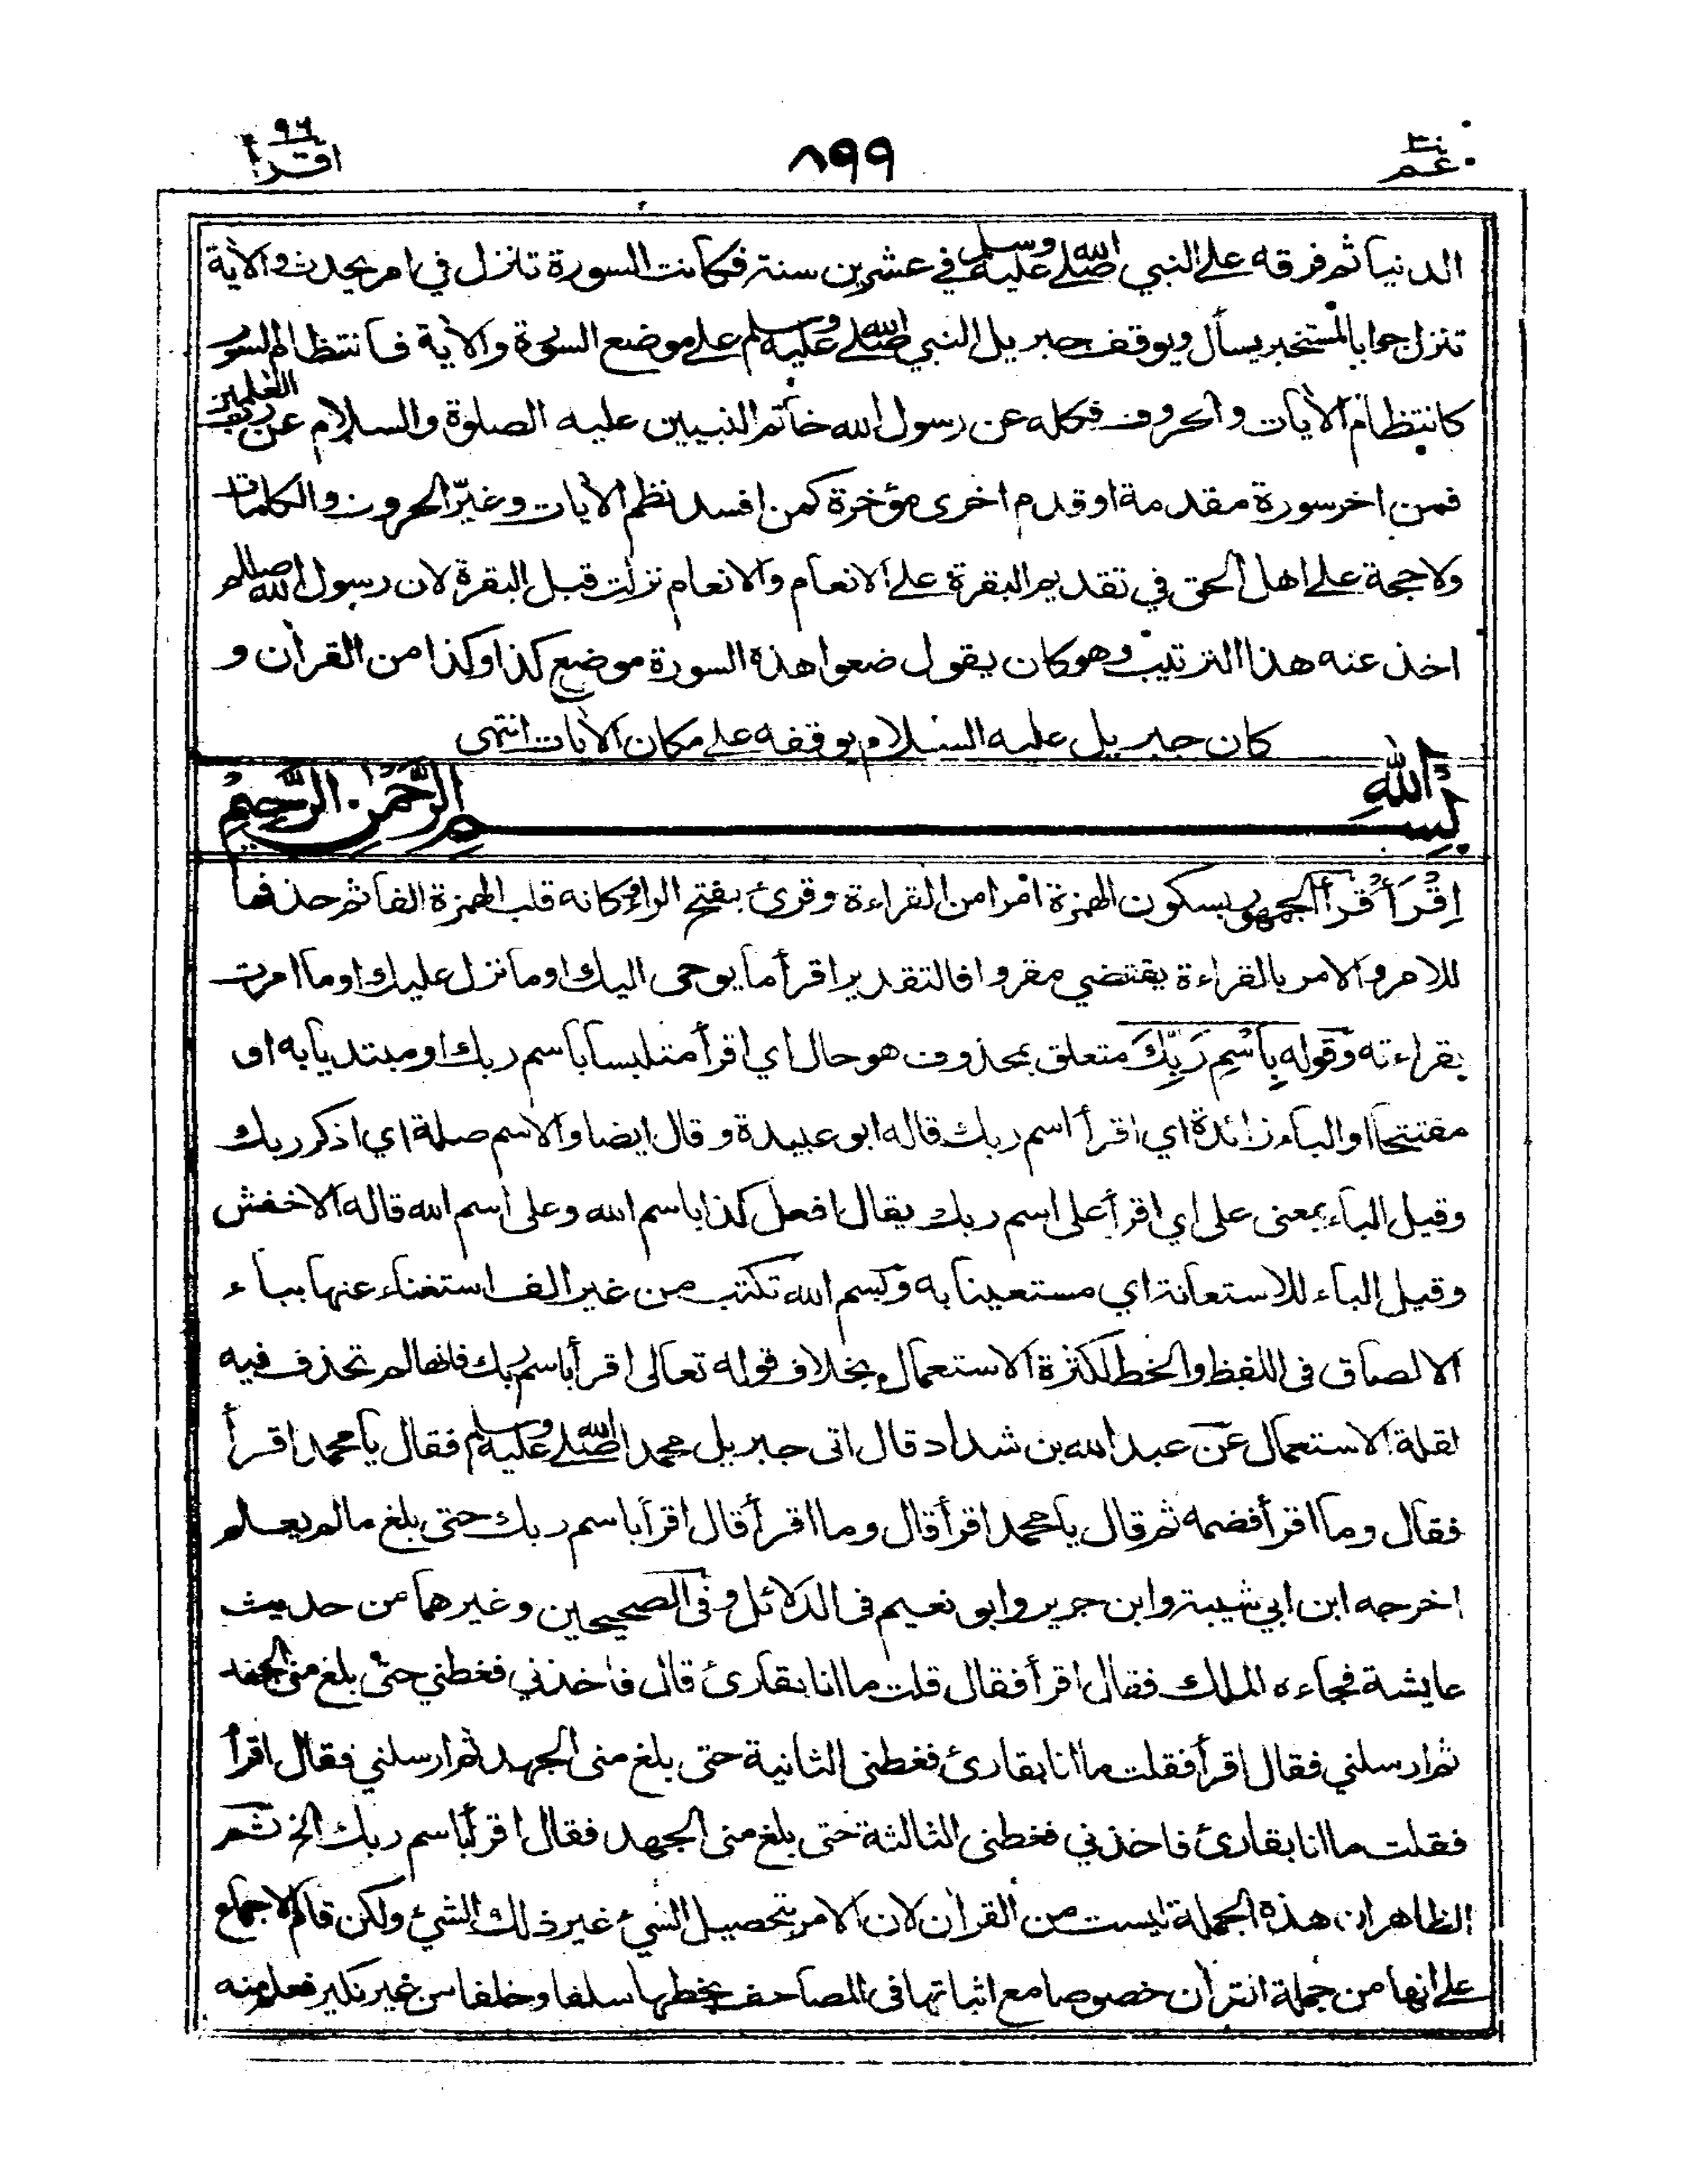 عم ٣٠
٨٩٩
٩٦ اقرأ
الدنيا ثم فرقه على النبي صلى الله عليه وسلم في عشرين سنة فكانت السورة تنزل في امر يحدث والاية
تنزل جوابا لمستخبر يسأل ويوقف جبريل النبي صلى الله عليه وسلم على موضع السورة والاية فانتظام السور
كانتظام الايات والحروف فكله عن رسول الله خاتم النبيين عليه الصلوة والسلام عن رب العلمين
فمن اخر سورة مقدمة او قدم اخرى مؤخرة كمن افسد نظم الايات وغيّر الحروف والكلمات
ولا حجة على اهل الحق في تقديم البقرة على الانعام والانعام نزلت قبل البقرة لان رسول الله صللم
اخذ عنه هذا الترتيب وهو كان يقول ضعوا هذه السورة موضع كذا وكذا من القرأن و
كان جبريل عليه السلام يوقفه على مكان الايات انتهى
بِسْمِ اللهِ الرَّحْمٰنِ الرَّحِيْمِ
اِقْرَأْ قرأ الجمهور بسكون الهمزة امرا من القراءة وقرئ بفتح الراء وكانه قلب الهمزة الفا ثم حذفها
للامر والامر بالقراءة يقتضي مقروا فالتقدير اقرأ ما يوحى اليك او ما نزل عليك او ما امرت
بقراءته وقوله بِاسْمِ رَبِّكَ متعلق بمحذوف هو حال اي اقرأ متلبسا باسم ربك او مبتديا به او
مفتتحا او الباء زائدة اي اقرأ اسم ربك قاله ابو عبيدة وقال ايضا والاسم صلة اي اذكر ربك
وقيل الباء بمعنى على اي اقرأ على اسم ربك يقال افعل كذا باسم الله وعلى اسم الله قاله الاخفش
وقيل الباء للاستعانة اي مستعينا به وبسم الله تكتب من غير الف استغناء عنها بباء
الالصاق فى اللفظ والخط لكثرة الاستعمال بخلاف قوله تعالى اقرأ باسم ربك فانها لم تحذف فيه
لقلة الاستعمال عن عبد الله بن شداد قال اتى جبريل محمدا صلى الله عليه وسلم فقال يا محمد اقرأ
فقال وما اقرأ فضمه ثم قال يا محمد اقرأ قال وما اقرأ قال اقرأ باسم ربك حتى بلغ ما لم يعلم
اخرجه ابن ابي شيبة وابن جرير وابو نعيم فى الدلائل وفى الصحيحين وغيرهما من حديث
عايشة فجاءه الملك فقال اقرأ فقال قلت ما انا بقارئ قال فاخذني فغطني حتى بلغ منى الجهد
ثم ارسلني فقال اقرأ فقلت ما انا بقارئ فغطنى الثانية حتى بلغ منى الجهد ثم ارسلني فقال اقرأ
فقلت ما انا بقارئ فاخذني فغطنى الثالثة حتى بلغ منى الجهد فقال اقرأ باسم ربك الخ ثم
الظاهر ان هذه الجملة ليست من القرأن لان الامر بتحصيل الشيء غير ذلك الشيء ولكن قام الاجماع
على انها من جملة القرأن خصوصا مع اثباتها فى المصاحف بخطها سلفا وخلفا من غير نكير فعلم منه